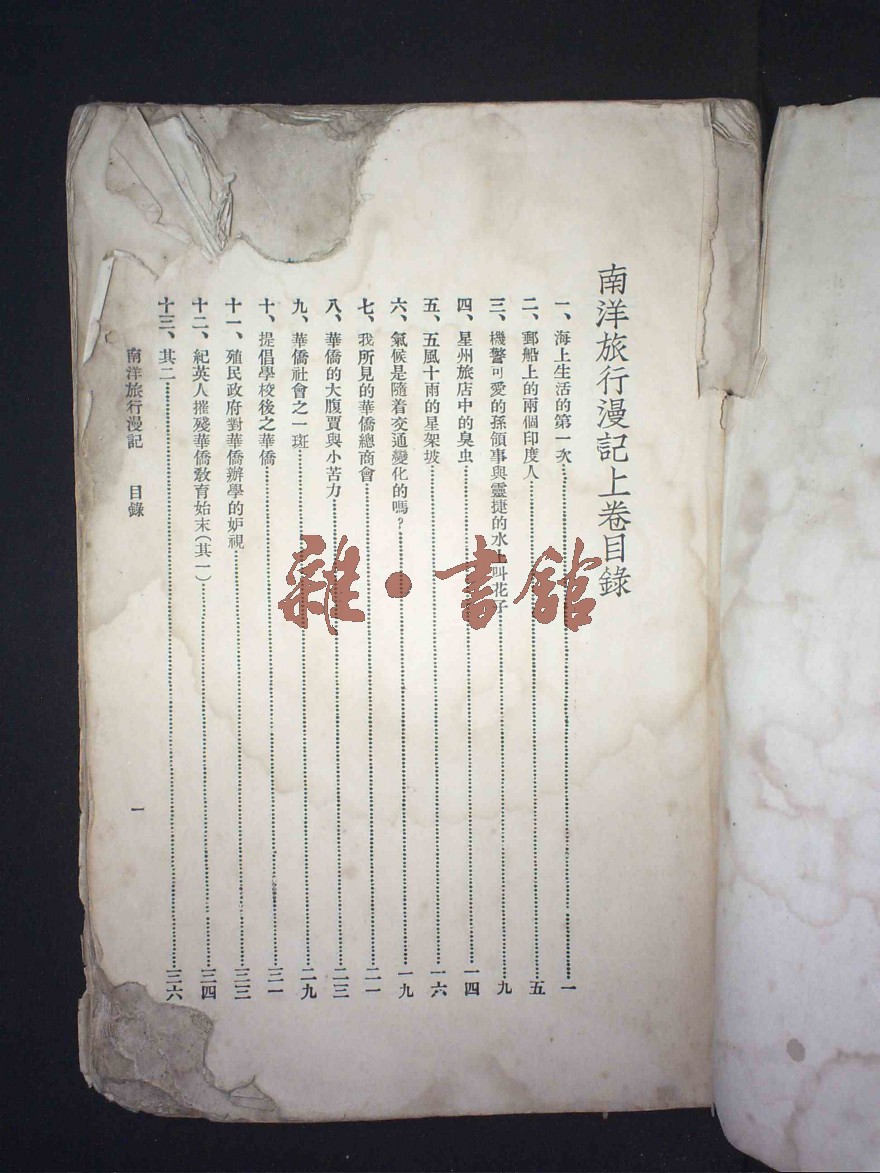 南洋旅行漫記上卷目錄
一、海上生活的第一次……一
二、郵船上的兩個印度人……五
三、機警可愛的孫領事與靈捷的水上叫花子……九
四、星州旅店中的臭虫……一四
五、五風十雨的星架坡……一六
六、氣候是隨着交通變化的嗎?……一九
七、我所見的華僑總商會……二一
八、華僑的大腹賈與小苦力……二三
九、華僑社會之一斑……二九
十、提倡學校後之華僑……三一
十一、殖民政府對華僑辦學的妒視……三三
十二、紀英人摧殘華僑敎育始末(其一)……三四
十三、其二……三六
南洋旅行漫記 目錄
一
雜·書館